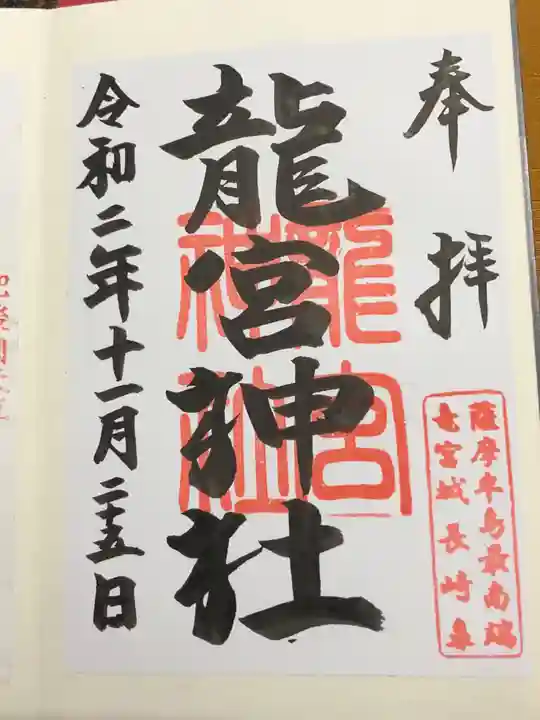 奉拝
薩摩半島最南端
竜宮城長崎鼻
龍宮神社
龍宮
神社
令和二年十一月二十五日